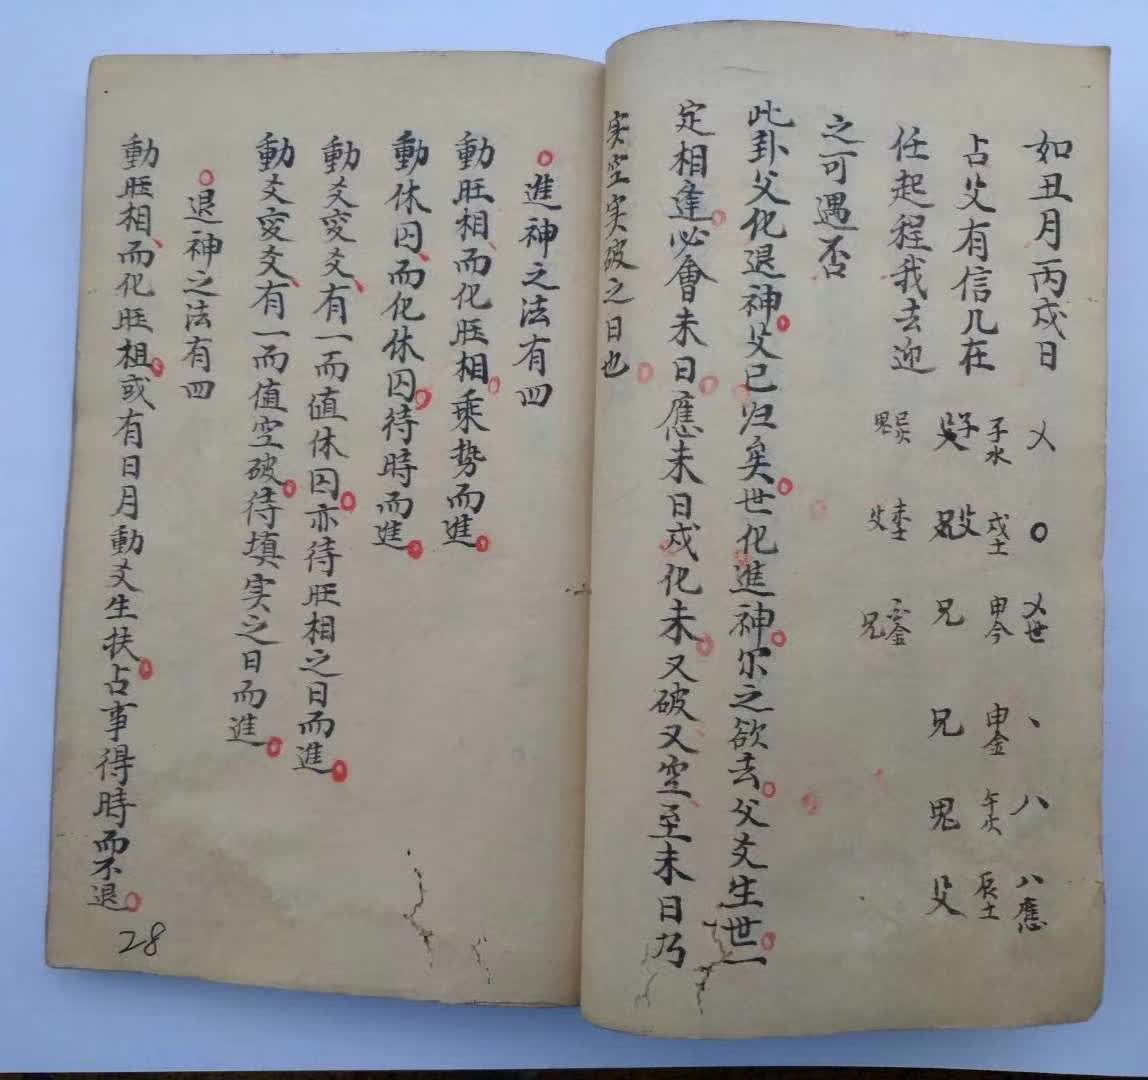 如丑月丙戍日
占父有信几在
任起程我去迎
之可遇否
乂 〇 乂世 、 八 八應
子水 戍土 申今 申金 午火 辰土
子 父 兄 兄 鬼 父
巳火 未土 酉金
鬼 父 兄
此卦父化退神。父已归矣。世化進神。尔之欲去。父爻生世。一
定相逢。必會未日。應未日戍化未。又破、又空、至未日乃
实空实破之日也。
。進神之法有四
動旺相、而化旺相。乘势而進。
動休囚、而化休囚。待時而進。
動爻变爻、有一而值休囚。亦待旺相之日而進。
動爻变爻、有一而值空破。待填实之日而進。
。退神之法有四
動旺相、而化旺相。或有日月動爻生扶。占事得時而不退。
28